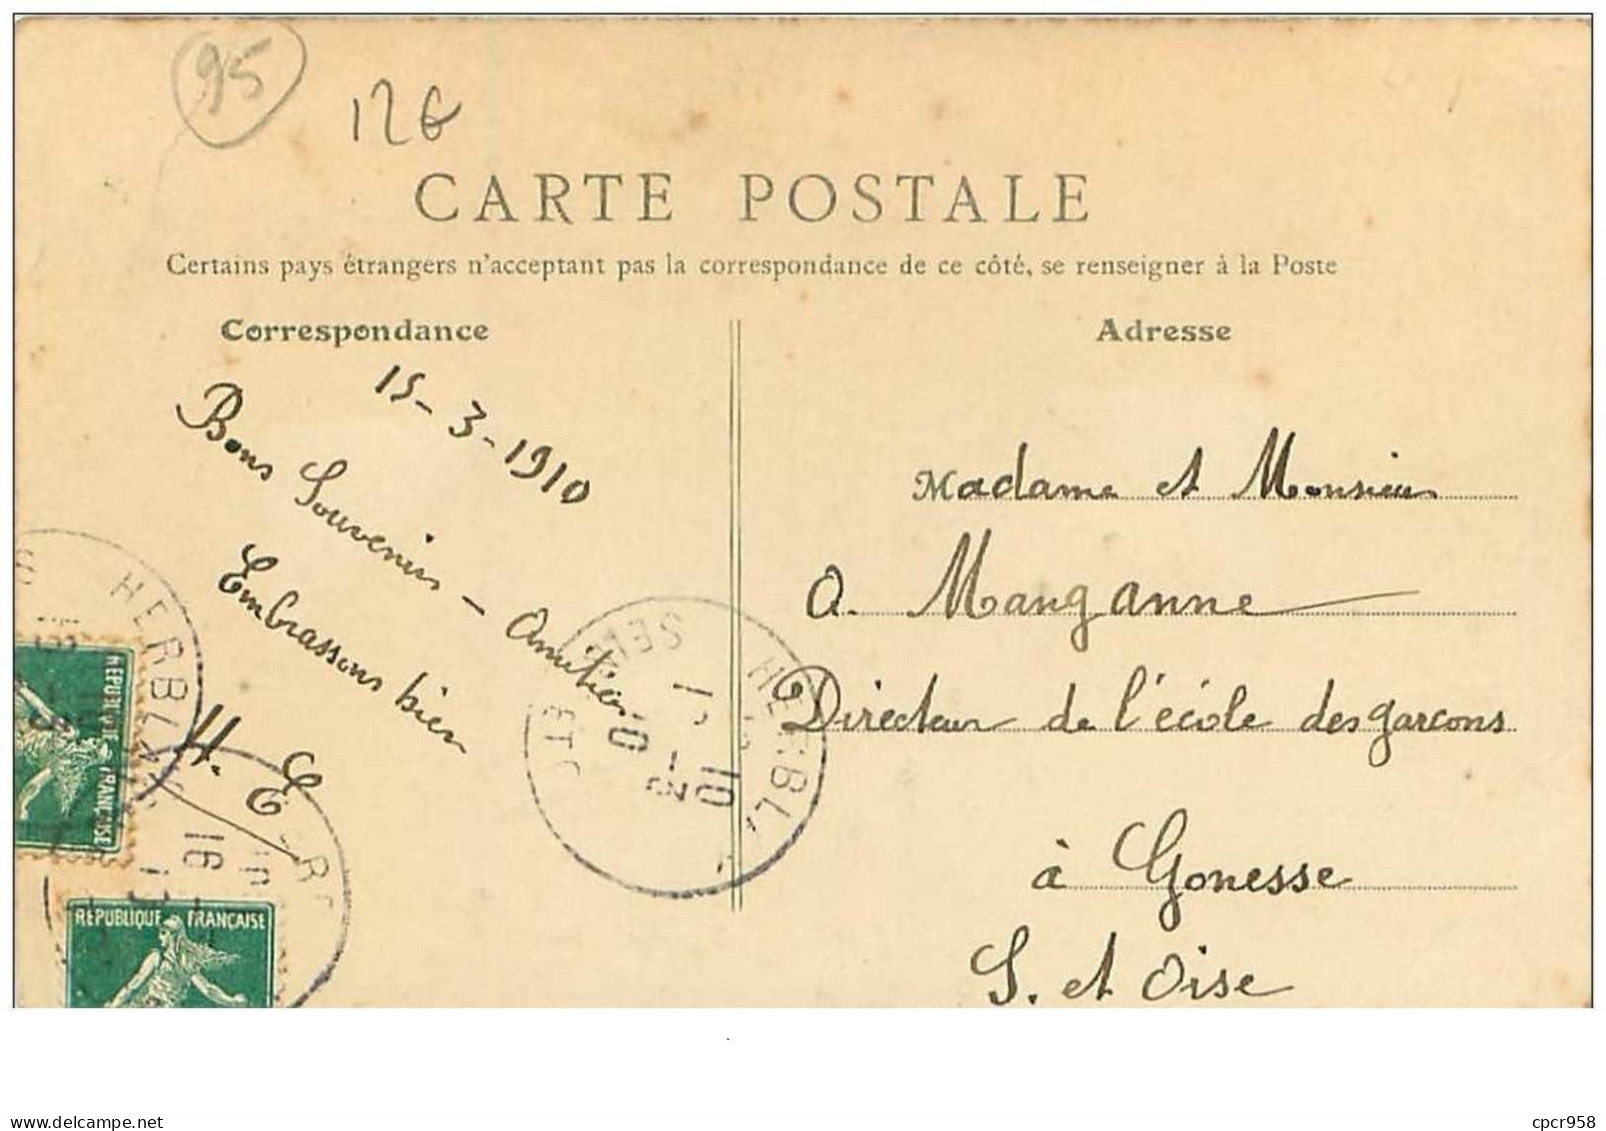 95
12€
CARTE POSTALE
Certains pays étrangers n'acceptant pas la correspondance de ce côté, se renseigner à la Poste
Correspondance
Adresse
15-3-1910
Bons Souvenirs - Amitiés
Embrassons bien
H. E.
Madame et Monsieur
O. Manganne
Directeur de l'école des garcons
à Gonesse
S. et Oise
HERBLAY
10
REPUBLIQUE FRANÇAISE
HERBLAY
SEINE ET O
10
16
REPUBLIQUE FRANÇAISE
www.delcampe.net
cpcr958